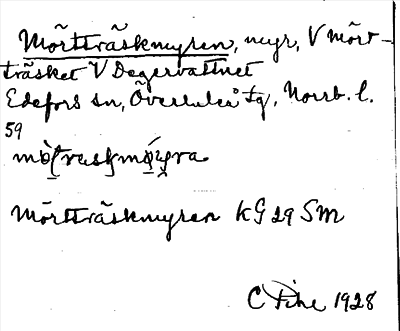 Mörtträskmyren, myr, V Mört-
träsket V Degervattnet
Edefors sn, Överluleå tg, Norrb. l.
59
Mörtträskmyren KG 29 SM
C Pihl 1928